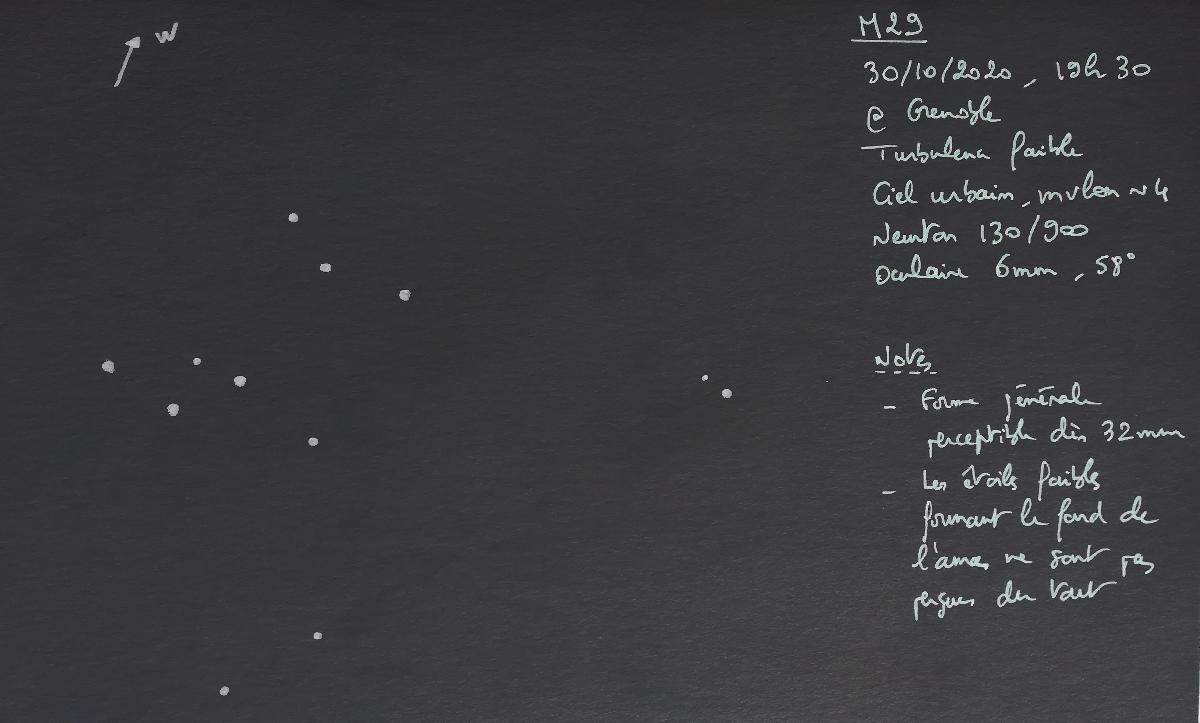 W
M29
30/10/2020, 19h30
@ Grenoble
Turbulence faible
Ciel urbain, mvlon ~4
Newton 130/900
Oculaire 6mm, 58°
Notes
- Forme générale
perceptible dès 32mm
- Les étoiles faibles
formant le fond de
l'amas ne sont pas
perçues du tout